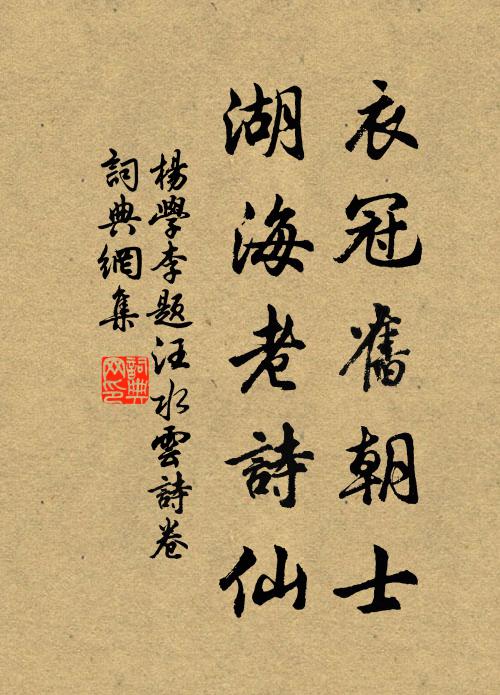 衣冠舊朝士
湖海老詩仙
楊學李題汪水雲詩卷
詞典網集
詞典网印